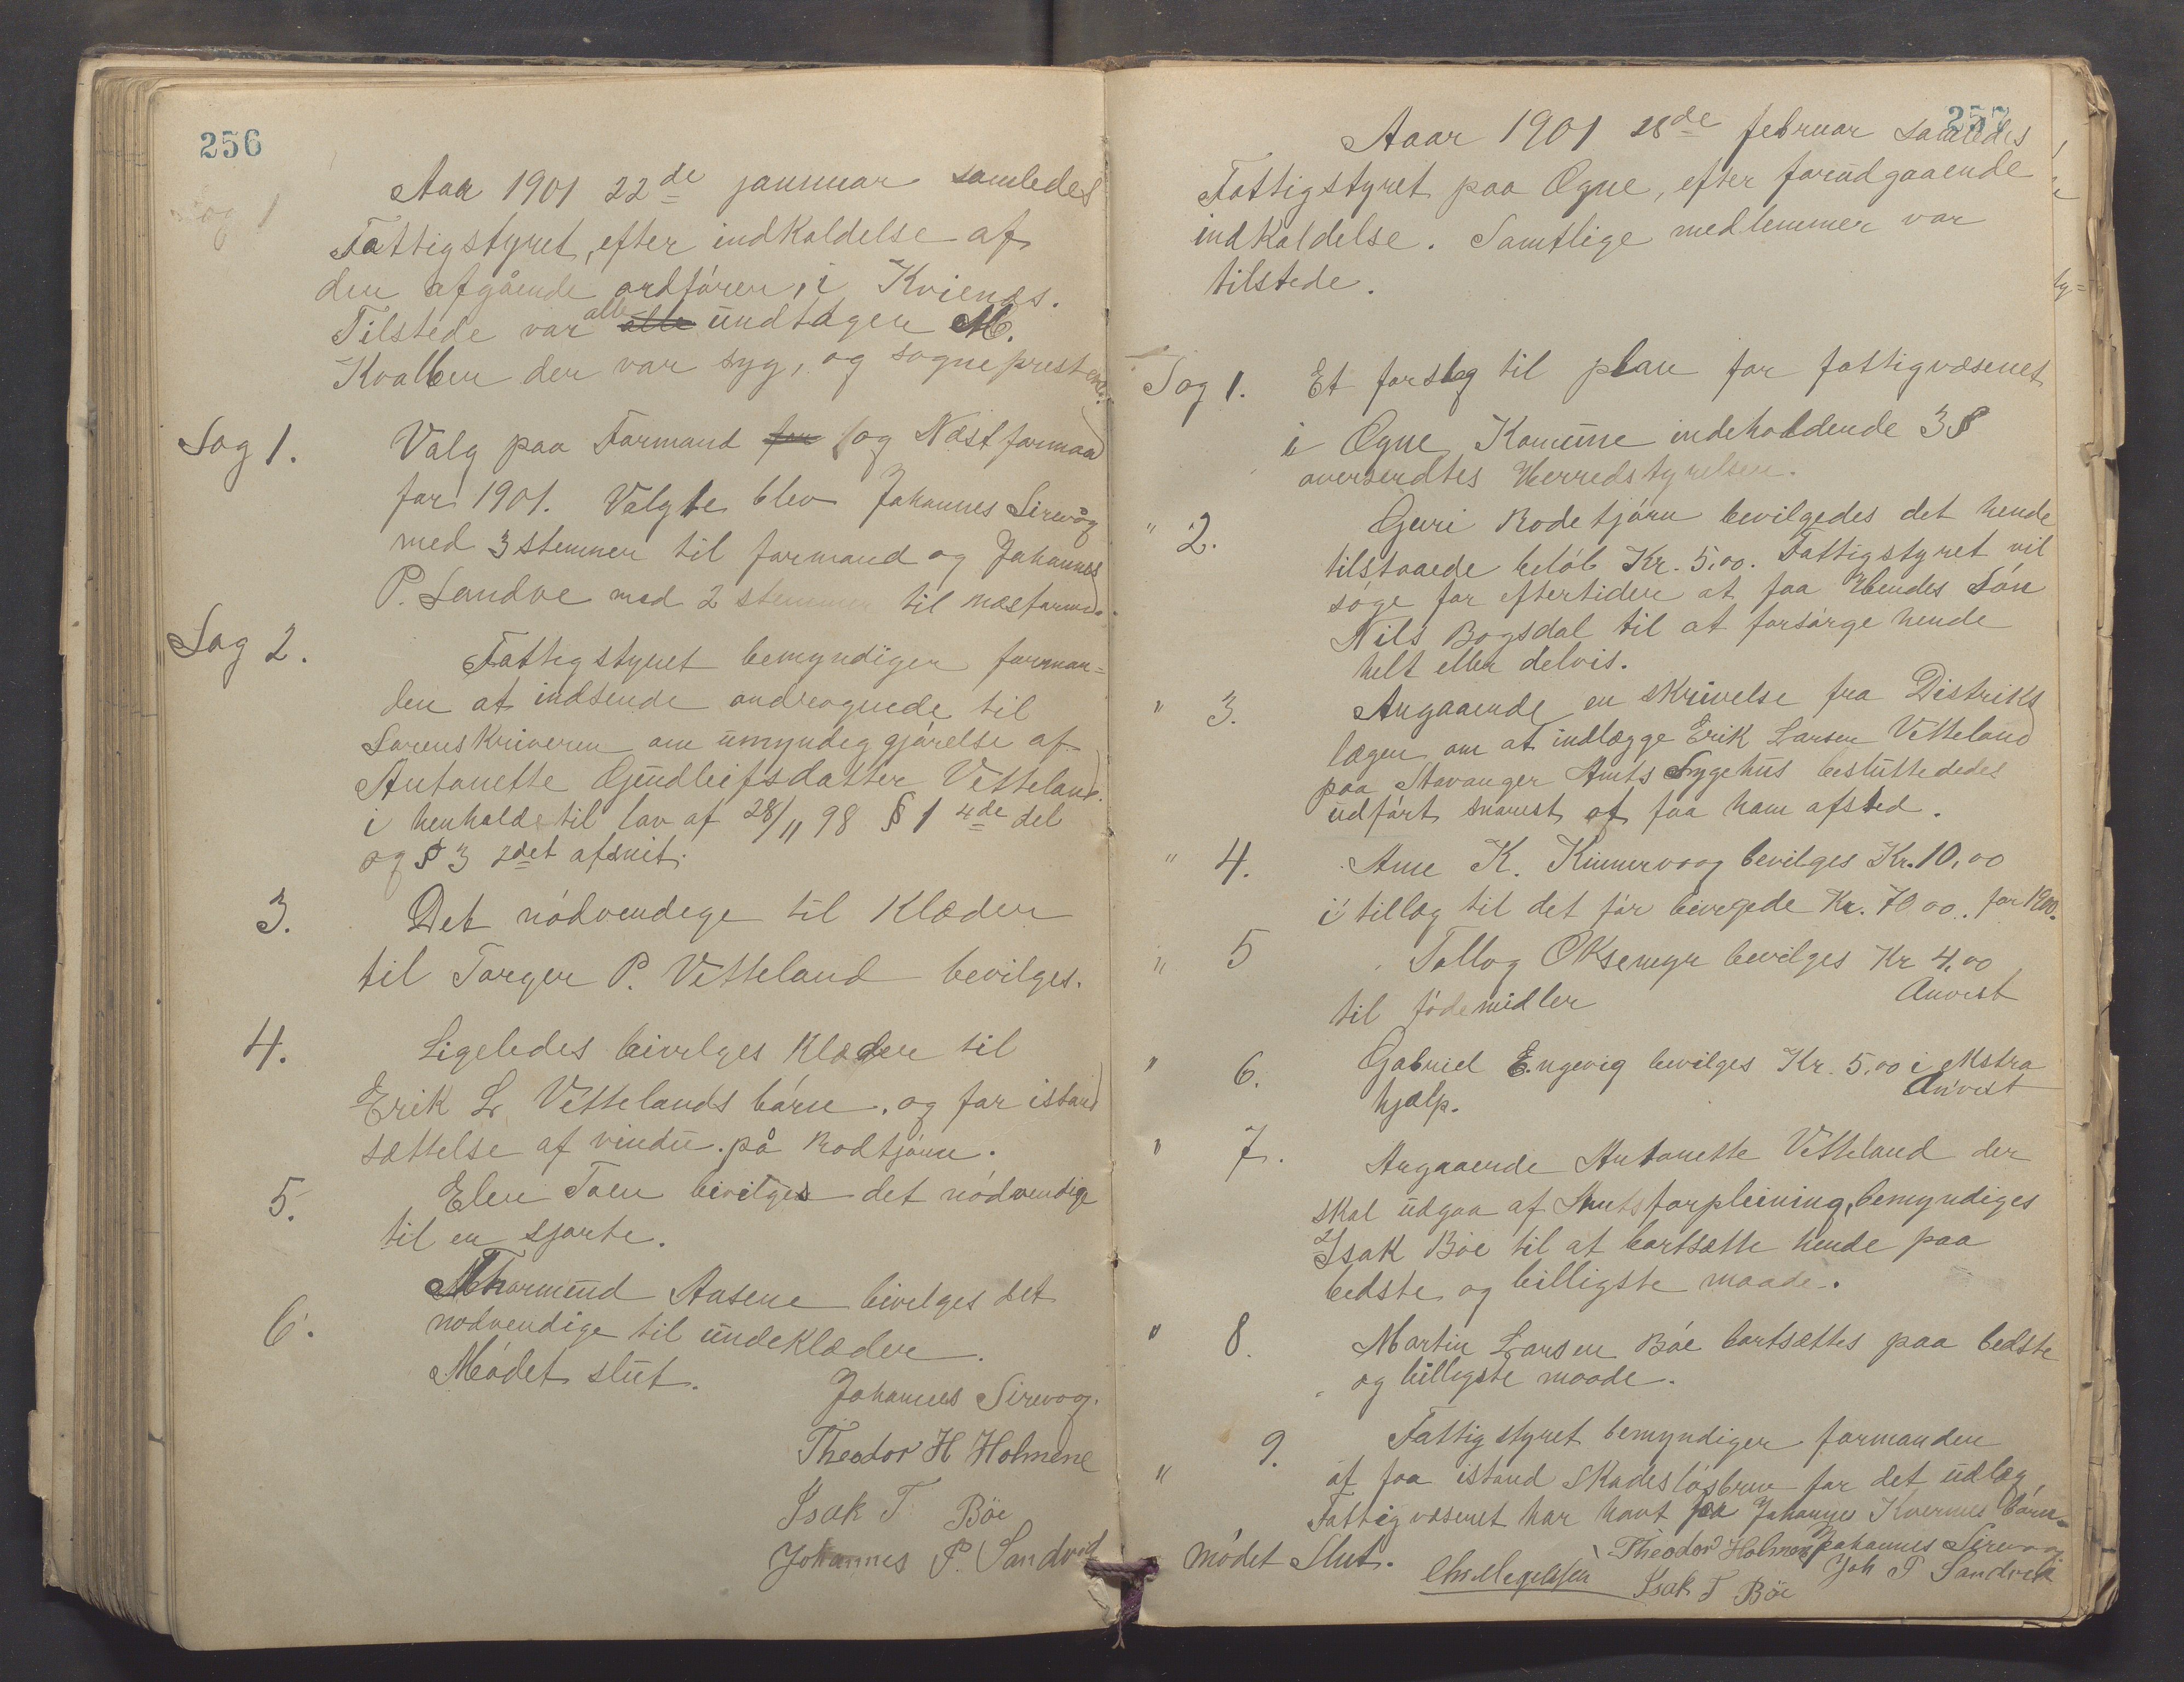 256
Aar 1901 22de januuar samledes
Fattigstyret, efter indkaldelse af
den afgående ordfören, i Kvienes.
alle
Tilstede var alle undtagen M.
Kvalben der var syg, og sogneprest
Sag 1.
Valg paa Formand for og Næstformand
for 1901. Valgte blev Johannes Sirevåg
med 3 stemmer til formand og Johannes
P. Sandve med 2 stemmer til næsformd.
Sag 2.
Fattigstyret bemyndiger forman=
den at indsende andragende til
Sorenskriveren om umyndiggjörelse af
Antonette Gundleifsdatter Vetteland
i henhold til lov af 28/11 98 § 1 4de del
og § 3 2det afsnit.
3.
Det nödvendege til Klæder
til Torger P. Vetteland bevilges.
4.
Ligeledes bevelges Klæder til
Erik L. Vettelands börn, og for istand
sættelse af vindu på Rodtjörn.
5.
Elen Toen bevilges det nödvendige
til en sjorte.
6.
Thormund Aasene bevelges det
nodvendige til undeklæder.
Mödet slut.
Johannes Sirevog.
Theodor H Holmene
Isak T. Böe
Johannes P. Sandvid
257
Aaar 1901 28de februar samledes
Fattigstyret paa Ogne, efter forudgaaende
indkaldelse. Samtlige medlemmer var
tilstede.
Sag 1.
Et forslag til plan for fattigvæsenet
i Ogne Komune indeholdende 3 §
oversendtes Herredstyrelsen.
" 2.
Guri Rodetjörn bevilgedes det hende
tilstaaede belöb Kr. 5,00. Fattigstyret vil
söge for eftertiden at faa Hendes Sön
Nils Bogsdal til at forsörge hende
helt eller delvis.
" 3.
Angaaende en skrivelse fra Distriks
lægen om at indlægge Erik Larsen Vetteland
paa Stavanger Amts Sygehus besluttededes
udfört snarest at faa ham afsted.
" 4.
Ane K. Kinnervaag bevilges Kr. 10,00
i tillæg til det för bevegede Kr. 70,00. for 1900.
" 5
Tollag Oksemyr bevilges Kr 4,00
til födemidler Anvist
" 6.
Gabriel Engevig bevilges Kr. 5,00 i ekstra
hjælp. Anvist
" 7.
Angaaende Antonette Vetteland der
skal udgaa af Amtsforpleining, bemyndiges
Isak Böe til at bortsætte hende paa
bedste og billigste maade.
" 8.
Martin Larsen Böe bortsættes paa bedste
og billigste maade.
" 9.
Fattigstyret bemyndiger formanden
at faa istand skadeslösbrev for det udlæg
Fattigvæsenet har havt paa Johannes Kvernes börn.
Mödet Slut.
Theodor Holmene Johannes Sirevaag
Isak T Böe Joh P Sandvik